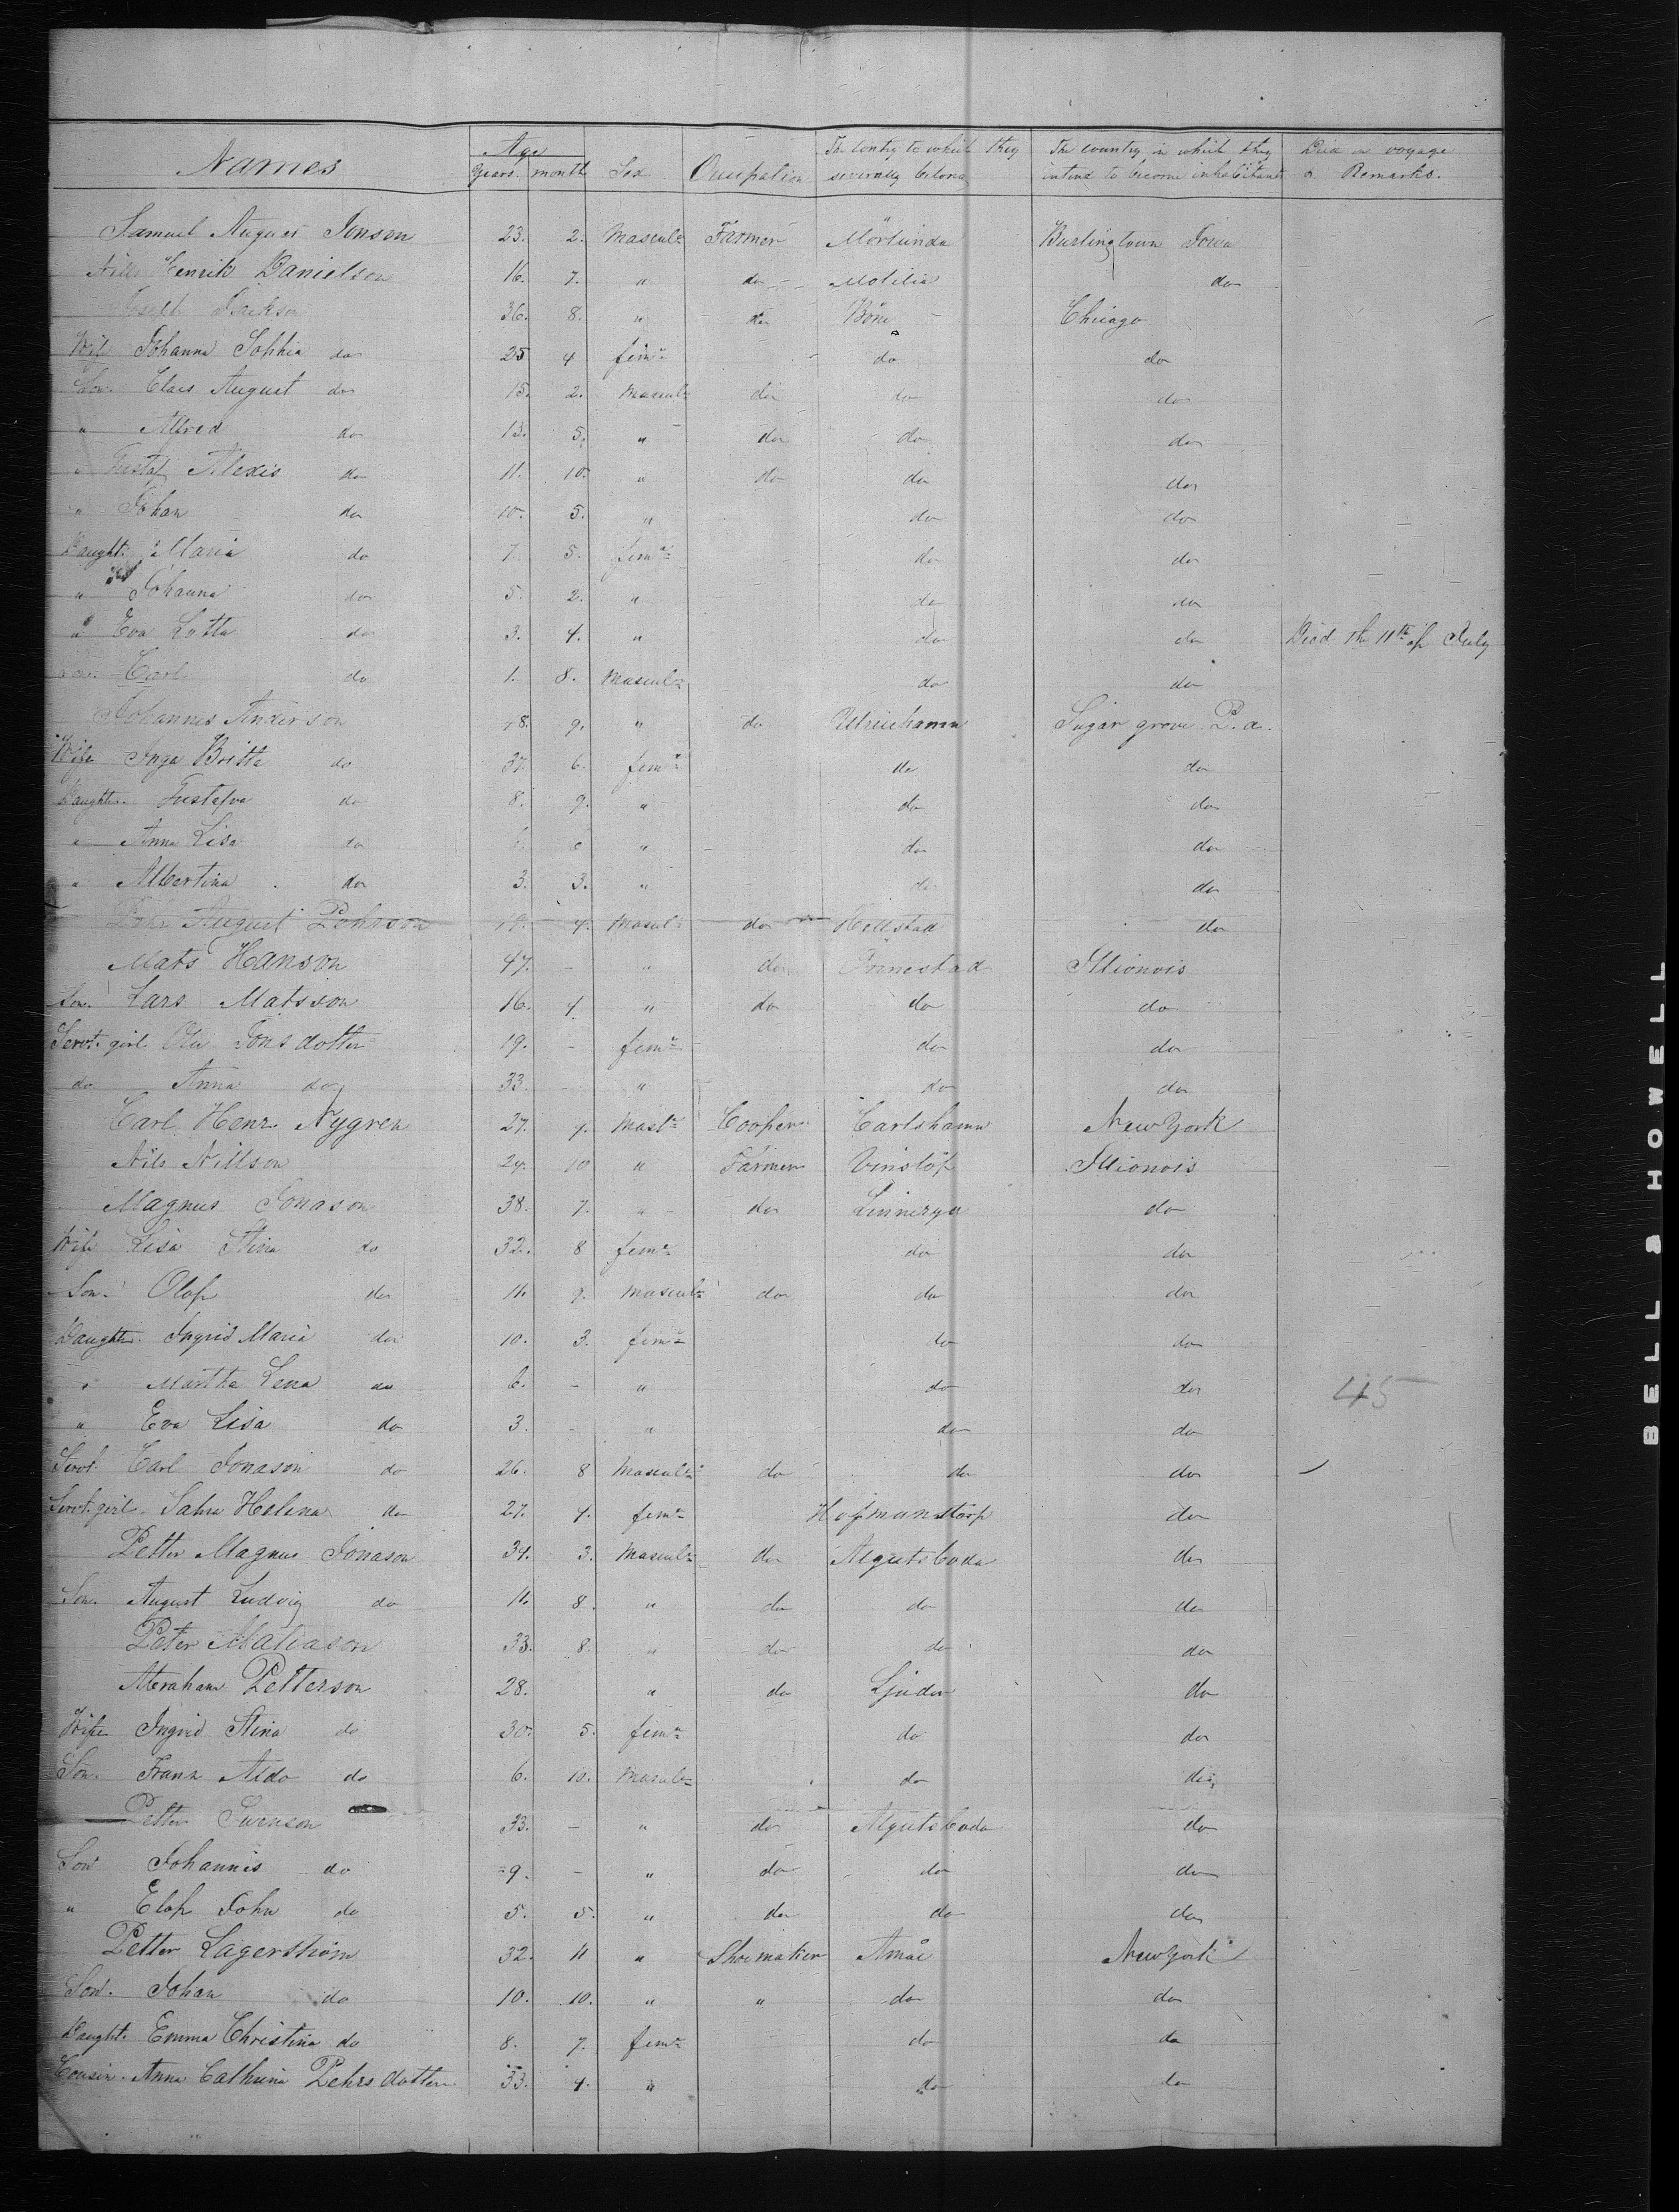 Names Age Sex Occupation The contry to which they The country in which they Died on voyage
Years month severally belong intend to become inhabitants & Remarks.
Samuel August Jonson 23. 2. Mascul= Farmer Mörlunda Burlingtown Iowa
Nils Henrik Danielson 16. 7. " do Motilia do
Joseph Isakson 36. 8. " do Böne Chicago
Wife Johanna Sophia do 25 4 fem= do do
Son. Claes August do 15. 2. Mascul= do do do
" Alfred do 13. 5. " do do do
" Gustaf Alexis do 11. 10. " do do do
" Johan do 10. 5. " do do
Daught. Maria do 7. 5. fem= do do
" Johanna do 5. 2. " do do
" Eva Lotta do 3. 4. " do do Died the 11th of July
Carl do 1. 8. Mascul= do do
Johannes Anderson 9. " do Ulricehamn Sugar grove P.a.
Wife Inga Britta do 37. 6. fem= do do
Daughter. Gustafva do 8. 9. " do do
" Anna Lisa do 6 " do do
" Albertina do 3. 3. " do do
Pehr August Pehrson 4. Mascul= do Hellstad do
Mats Hanson 47. - " do Önnestad Illionois
Son. Lars Matsson 16. 4. " do do do
Servt. girl. Ola Jonsdotter 19. - fem= do do
do Anna do 33. - " do do
Carl Henr. Nygren 27. 4. Masc= Cooper Carlshamn New York
Nils Nillson 24. 10 " Farmer Vinslöf Illionois
Magnus Jonason 38. 7. " do Linneryd do
Wife Lisa Stina do 32. 8 fem= do do
Son. Olof do 11. 9. Mascul= do do do
Daughter. Ingrid Maria do 10. 3. fem= do do
" Martha Lena do 6. - " do do 45
" Eva Lisa do 3. - " do do
Servt. Carl Jonason do 26. 8 Mascul= do do do
Servt. girl. Sahra Helena do 27. 4. fem= Hofmanstorp do
Petter Magnus Jonason 34. 3. Mascul= do Algutsboda do
Son. August Ludvig do 11. 8. " do do do
Peter Matiason 33. 8. " do do do
Abraham Petterson 28. " do Ljuder do
Wife Ingrid Stina do 30. 5. fem= do do
Son. Franz Aldo do 6. 10. Mascul= do do
Petter Swenson 33. - " do Algutsboda do
Son Johannis do 9. - " do do do
" Elof John do 5. 5. " do do do
Petter Lagerström 32. 11 " Shoemaker Åmål New York
Son. Johan do 10. 10. " " do do
Daught. Emma Christina do 8. 7. fem= do do
Cousin. Anna Cathrina Pehrsdotter 33. 4. " do do
BELL & HOWELL